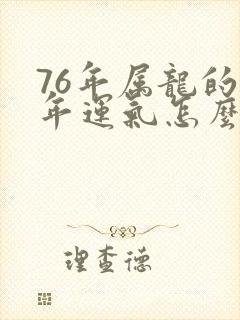 76年属龍的
年運氣怎麼
理查德